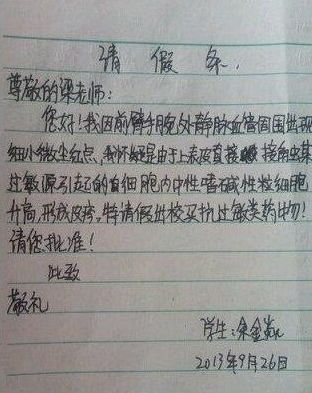 请 假 条.
尊敬的梁老师:
您好!我因前臂手腕外静脉血管周围出现
细小微尘红点、我怀疑是由于上表皮直接接触某
过敏源引起的白细胞内中性嗜碱性粒细胞
升高,形成皮疹,特请假出校买抗过敏类药物!
请您批准!
此致
敬礼
学生:余金
2013年9月26日